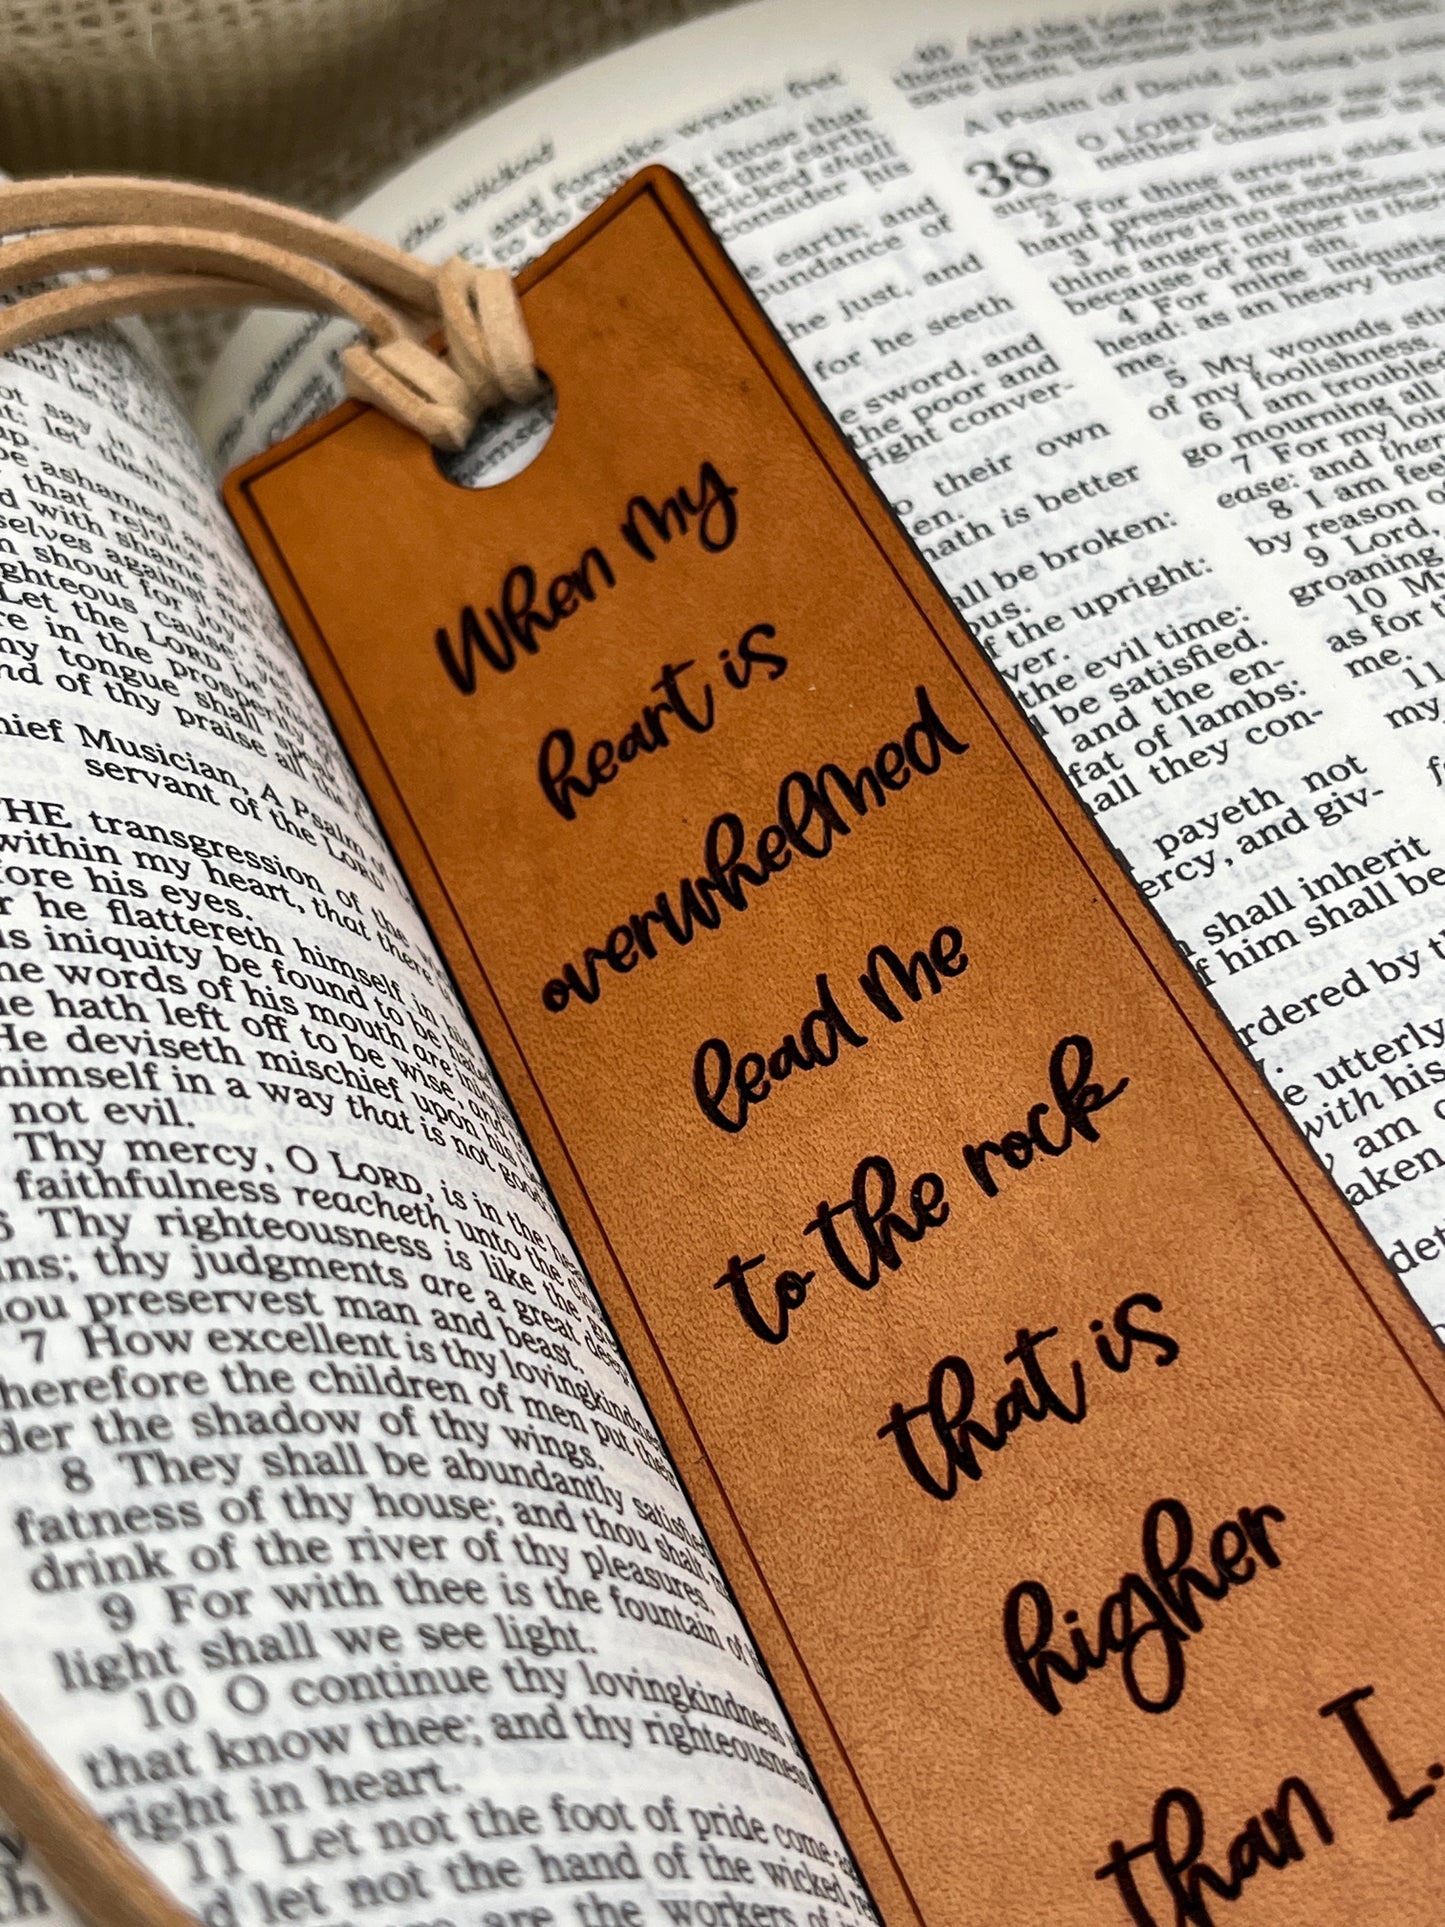 When my
heart is
overwhelmed
lead me
to the rock
that is
higher
than I.
ot say in
t: let them
ap.
be ashamed and
that rejoice
d with shame and
selves against me.
n shout for joy,
ghteous cause:
Let the LORD be
re in the prosperity
my tongue shall
nd of thy praise all the
hief Musician, A Psalm of
servant of the LORD.
THE transgression of the
within my heart, that there
fore his eyes.
r he flattereth himself in his
is iniquity be found to be hateful
he words of his mouth are iniquity
he hath left off to be wise, and
He deviseth mischief upon his
himself in a way that is not good
not evil.
Thy mercy, O LORD, is in the
faithfulness reacheth unto the
6 Thy righteousness is like the
ns; thy judgments are a great deep:
ou preservest man and beast.
7 How excellent is thy lovingkindness
herefore the children of men put their
der the shadow of thy wings.
8 They shall be abundantly satisfied
fatness of thy house; and thou shalt
drink of the river of thy pleasures.
9 For with thee is the fountain of
light shall we see light.
10 O continue thy lovingkindness
that know thee; and thy righteousness
right in heart.
11 Let not the foot of pride come
d let not the hand of the wicked
are the workers of
the wicked
and forsake wrath: fret
to do
those that
the earth.
wicked shall
consider his
e earth; and
bundance of
he just, and
for he seeth
e sword, and
the poor and
right conver-
o their own
en.
hath is better
all be broken:
ous.
f the upright:
ver.
the evil time:
be satisfied.
and the en-
fat of lambs:
all they con-
payeth not
ercy, and giv-
shall inherit
f him shall be
rdered by
e utterly
with his
am
aken
40 And the LORD shall
them: he shall
save them, because they
A Psalm of David, to bring to
38 O LORD, rebuke me
neither chasten me in
sure.
2 For thine arrows stick
hand presseth me sore.
3 There is no soundness
thine anger; neither is there
because of my sin.
4 For mine iniquities
head: as an heavy
me.
5 My wounds
of my foolishness.
6 I am troubled
go mourning all
7 For my
ease: and
8 I am
by reason
9 Lord
groaning
10 My
as for
me.
11
my